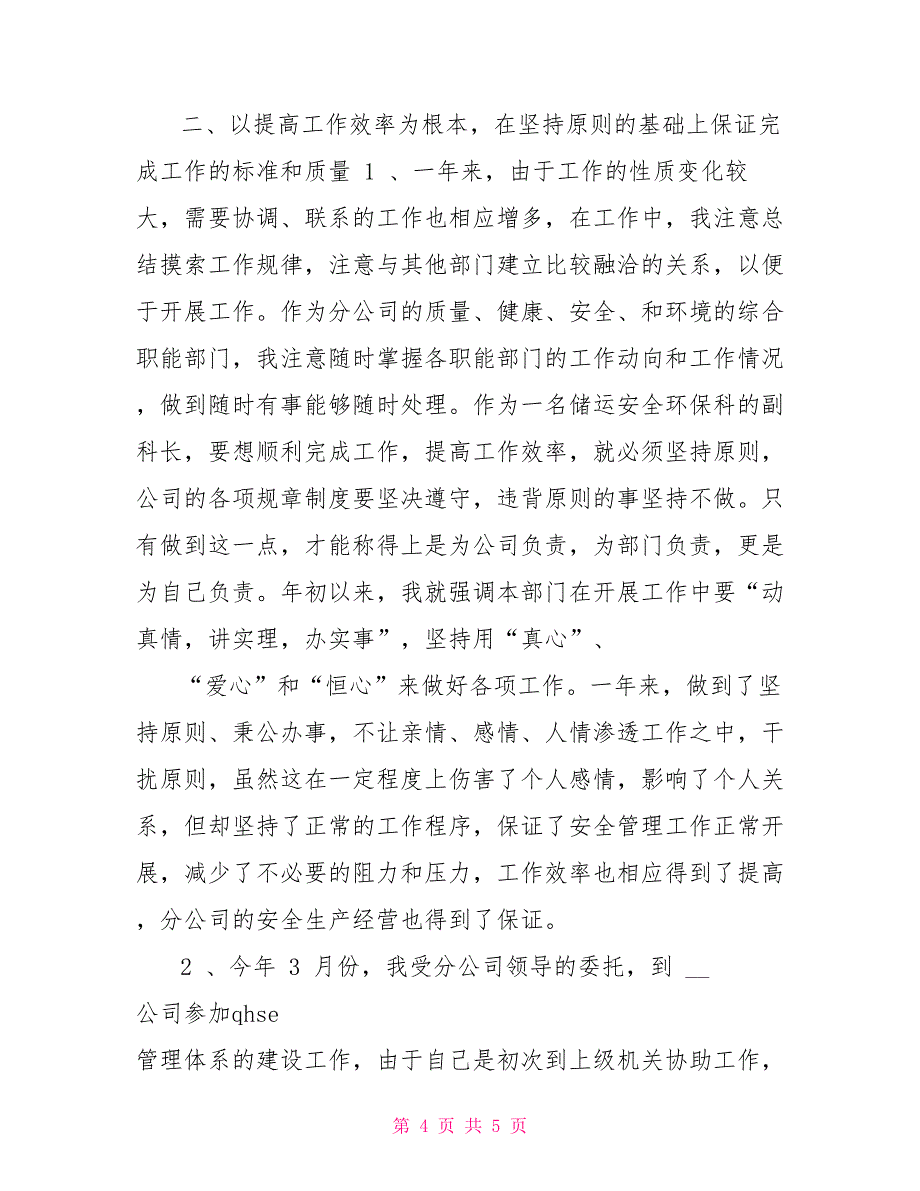 二、以提高工作效率为根本，在坚持原则的基础上保证完
成工作的标准和质量 1 、一年来，由于工作的性质变化较
大，需要协调、联系的工作也相应增多，在工作中，我注意总
结摸索工作规律，注意与其他部门建立比较融洽的关系，以便
于开展工作。作为分公司的质量、健康、安全、和环境的综合
职能部门，我注意随时掌握各职能部门的工作动向和工作情况
，做到随时有事能够随时处理。作为一名储运安全环保科的副
科长，要想顺利完成工作，提高工作效率，就必须坚持原则，
公司的各项规章制度要坚决遵守，违背原则的事坚持不做。只
有做到这一点，才能称得上是为公司负责，为部门负责，更是
为自己负责。年初以来，我就强调本部门在开展工作中要“动
真情，讲实理，办实事”，坚持用“真心”、
“爱心”和“恒心”来做好各项工作。一年来，做到了坚
持原则、秉公办事，不让亲情、感情、人情渗透工作之中，干
扰原则，虽然这在一定程度上伤害了个人感情，影响了个人关
系，但却坚持了正常的工作程序，保证了安全管理工作正常开
展，减少了不必要的阻力和压力，工作效率也相应得到了提高
，分公司的安全生产经营也得到了保证。
2 、今年 3 月份，我受分公司领导的委托，到 __
公司参加qhse
管理体系的建设工作，由于自己是初次到上级机关协助工作，
第 4 页 共 5 页